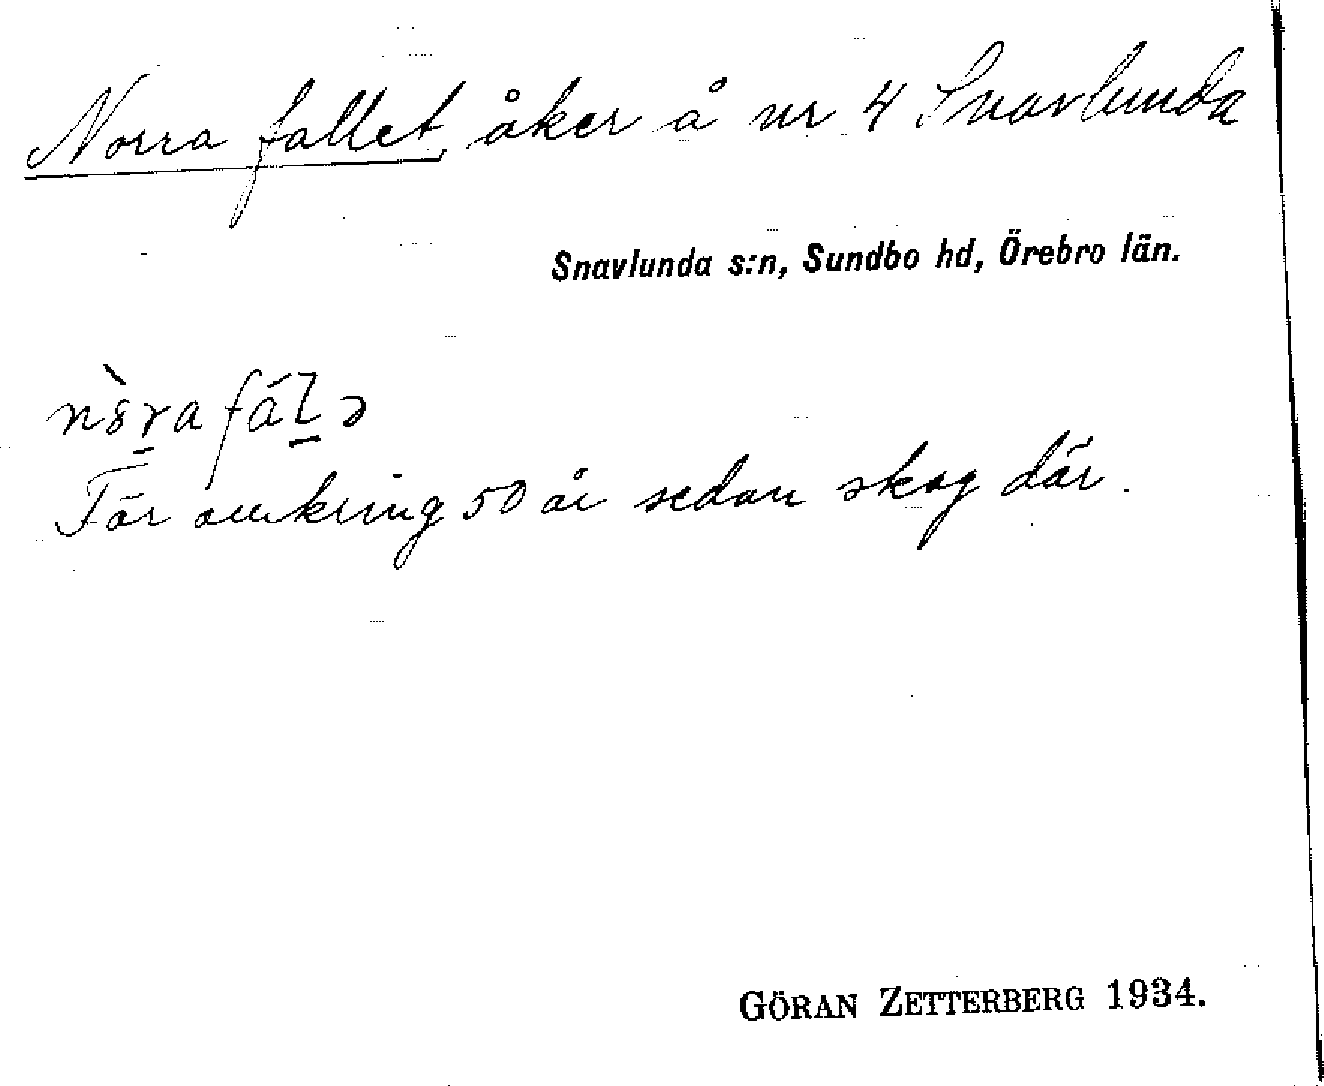 Norra fallet, åker å nr 4 Snavlunda
Snavlunda s:n, Sundbo hd, Örebro län.
För omkring 50 år sedan skog där.
GÖRAN ZETTERBERG 1934.